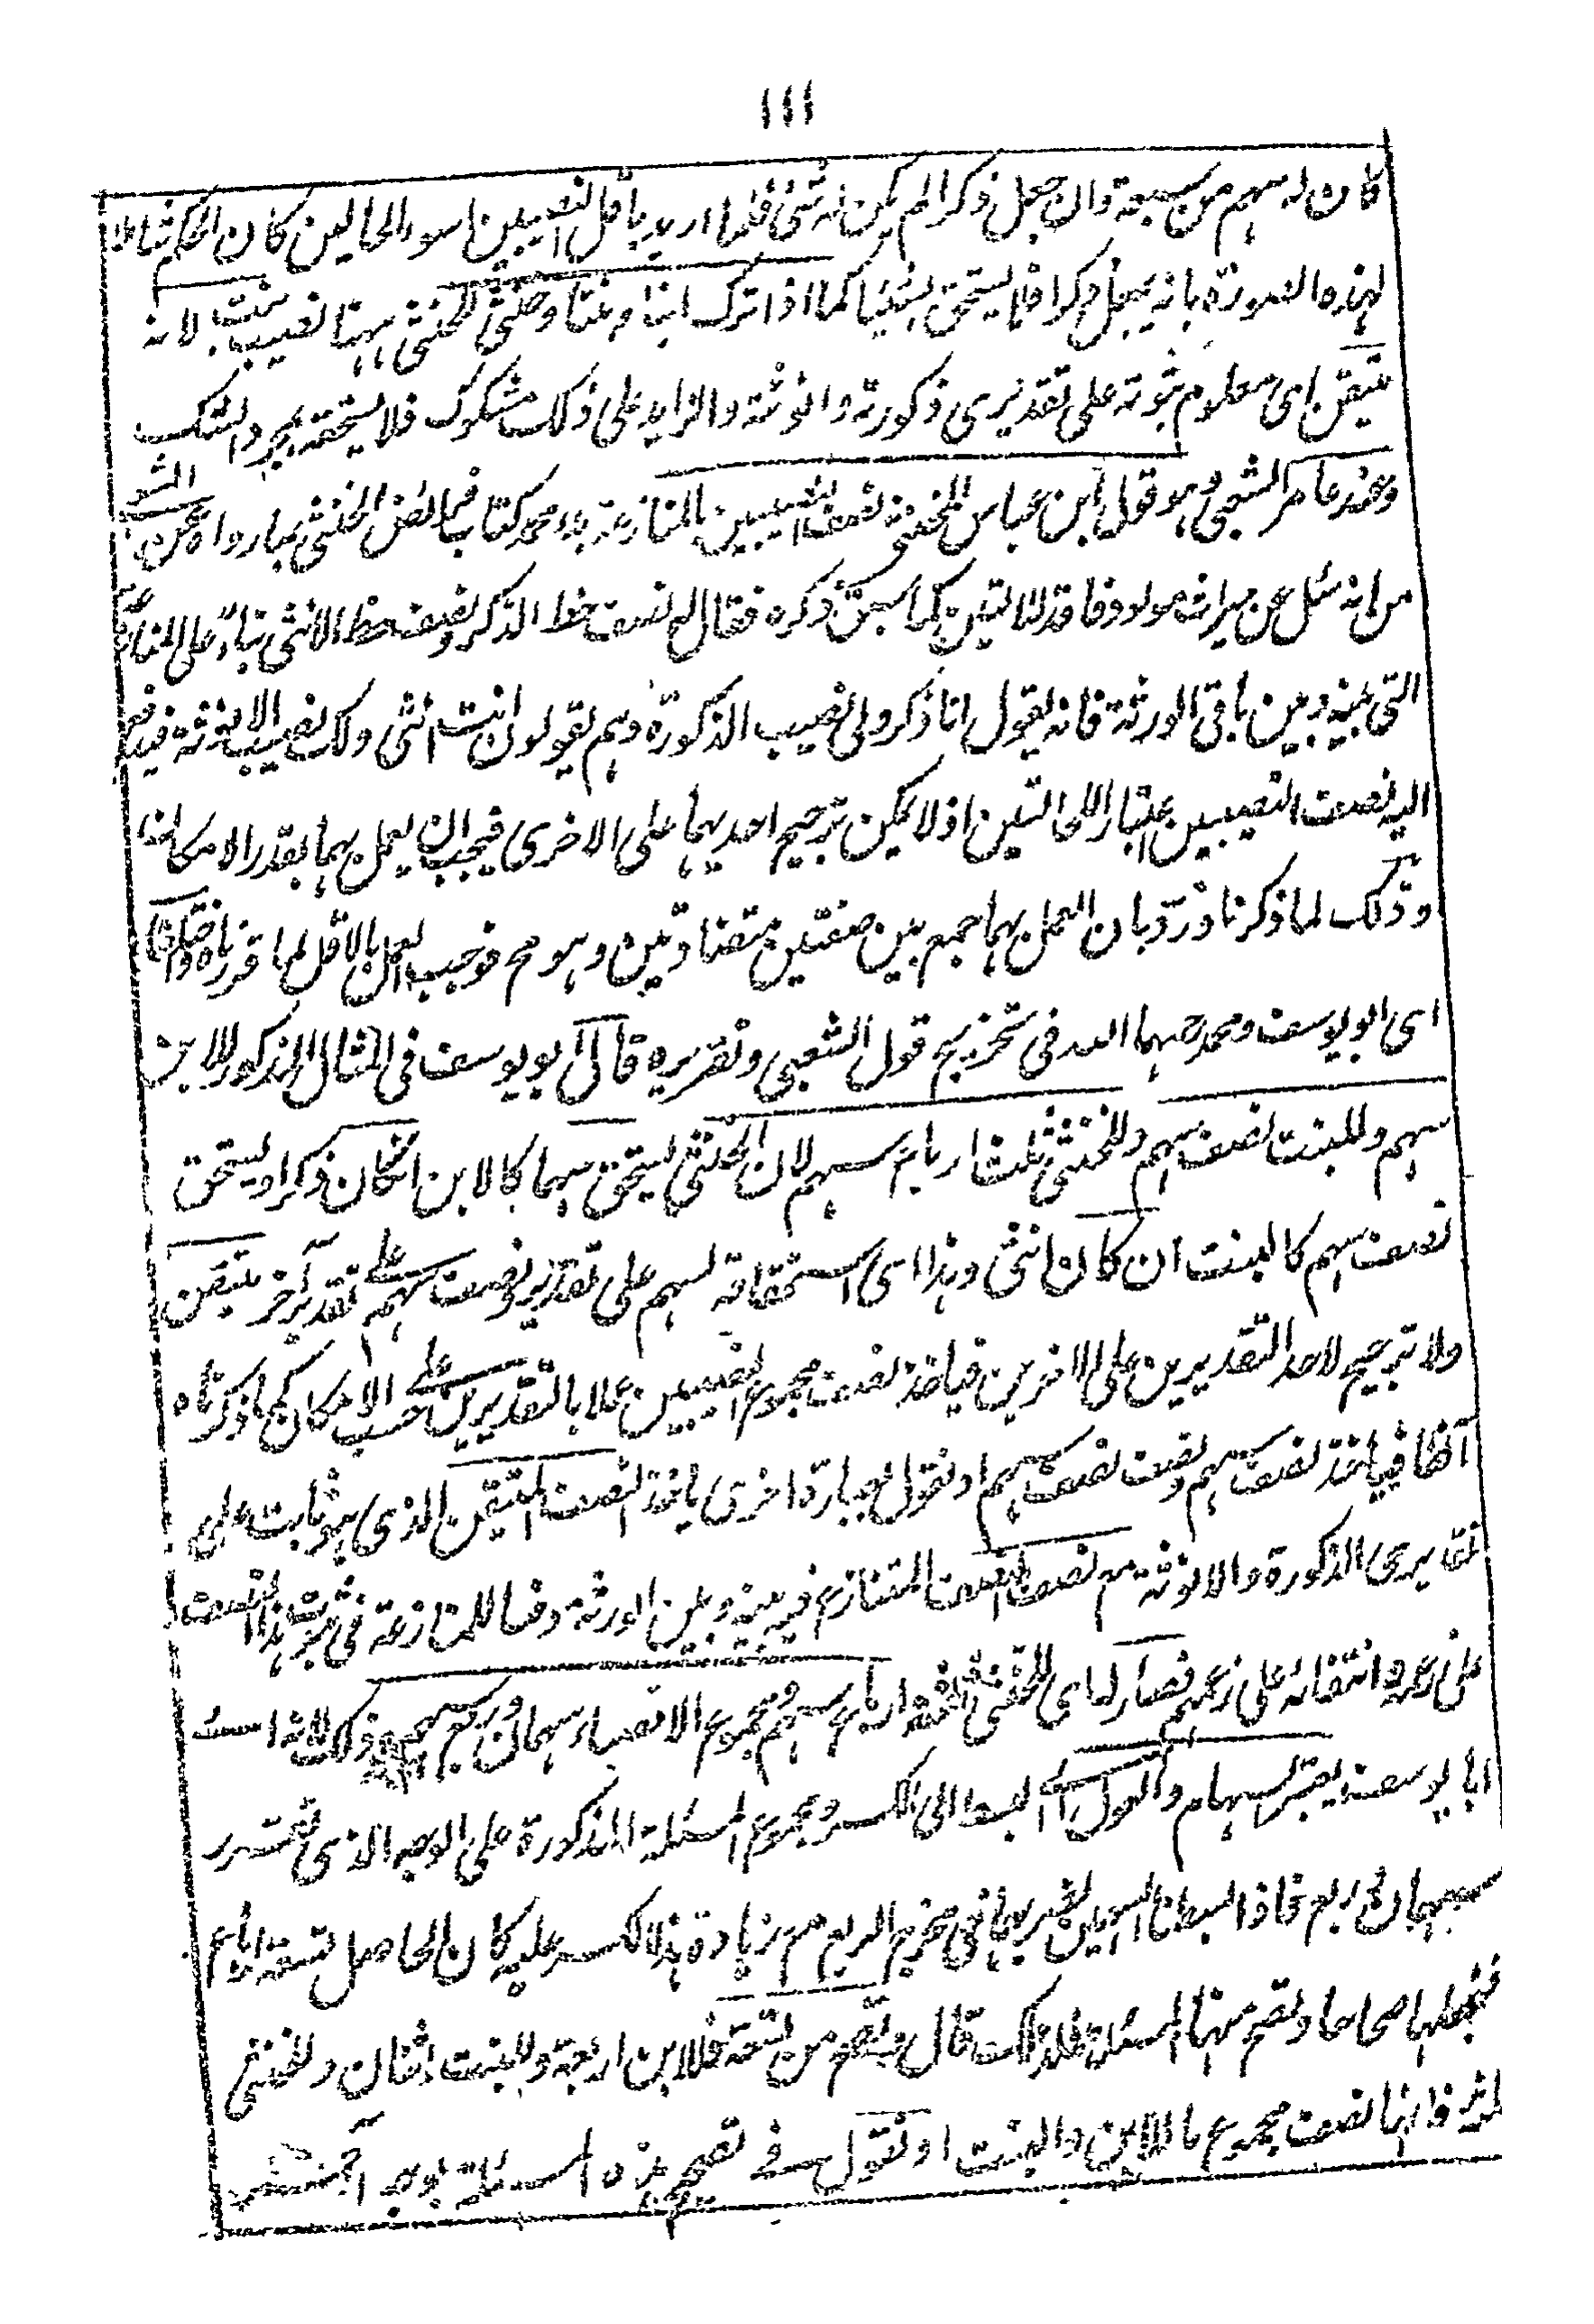 ١١١
كان له سهم من سبعة وان جعل ذكرا لم يكن له شئ فلما اريد باقل النصيبين اسوء الحالين كان الحكم شاملا
لهذه الصورة بانه يجعل ذكرا فلا يستحق شيئا كما اذا ترك ابنا وبنتا وخنثى للخنثى ههنا نصيب بنت لانه
متيقن اى معلوم ثبوته على تقديرى ذكورته وانوثته والزايد على ذلك مشكوك فلا يستحقه بمجرد الشك
وعند عامر الشعبى وهو قول ابن عباس للخنثى نصف النصيبين بالمنازعة بدء محمد كتاب فرائض الخنثى بما رواه عن الشعبى
من انه سئل عن ميراث مولود فاقد لالتين كما سبق ذكره فقال له نصف حظ الذكر ونصف حظ الانثى بناء على المنازعة
التى بينه وبين باقى الورثة فانه يقول انا ذكر ولى نصيب الذكورة وهم يقولون انت انثى ولك نصيب الانوثة فيدفع
اليه نصف النصيبين باعتبار الحالتين اذ لا يمكن ترجيح احديهما على الاخرى فيجب ان يعمل بهما بقدر الامكان
وذلك لما ذكرنا ورد بان العمل بهما جمع بين صفتين متضادتين وهو مح فوجب العمل بالاقل لما قررناه واختلفا
اى ابو يوسف ومحمد رحهما الله فى تخريج قول الشعبى وتقريره قال ابو يوسف فى المثال المذكور للابن
سهم وللبنت نصف سهم وللخنثى ثلث ارباع سهم لان الخنثى يستحق سهما كالابن ان كان ذكرا ويستحق
نصف سهم كالبنت ان كان انثى وهذا اى استحقاقه لسهم على تقدير ونصف سهم على تقدير آخر متيقن
ولا ترجيح لاحد التقديرين على الاخرين فياخذ نصف مجموع النصيبين عملا بالتقديرين على حسب الامكان كما ذكرناه
آنفا فياخذ نصف سهم ونصف نصف سهم او نقول بعبارة اخرى ياخذ النصف المتيقن الذى هو ثابت على
تقديرى الذكورة والانوثة مع نصف النصف المتنازع فيه بينه وبين الورثة دفعا للمنازعة فى ثبوت هذا النصف
على زعمه وانتفائه على زعمهم فصار له اى للخنثى ثلثة ارباع سهم ومجموع الانصباء سهمان وربع سهم وذلك لانه اى
ابا يوسف يعتبر السهام والعول اى البسط الى الكسر ومجموع المسئلة المذكورة على الوجه الذى تقرر
سهمان وربع فاذا بسطنا السهمين لضربهما فى مخرج الربع مع زيادة هذا الكسر عليه كان الحاصل تسعة ارباع
فنجعلها صحاحا وتصح منها المسئلة فلذلك قال وتصح من تسعة فللابن اربعة وللبنت اثنان وللخنثى
ثلثة فانها نصف مجموع ما للابن والبنت او نقول فى تصحيح هذه المسئلة بوجه آخر